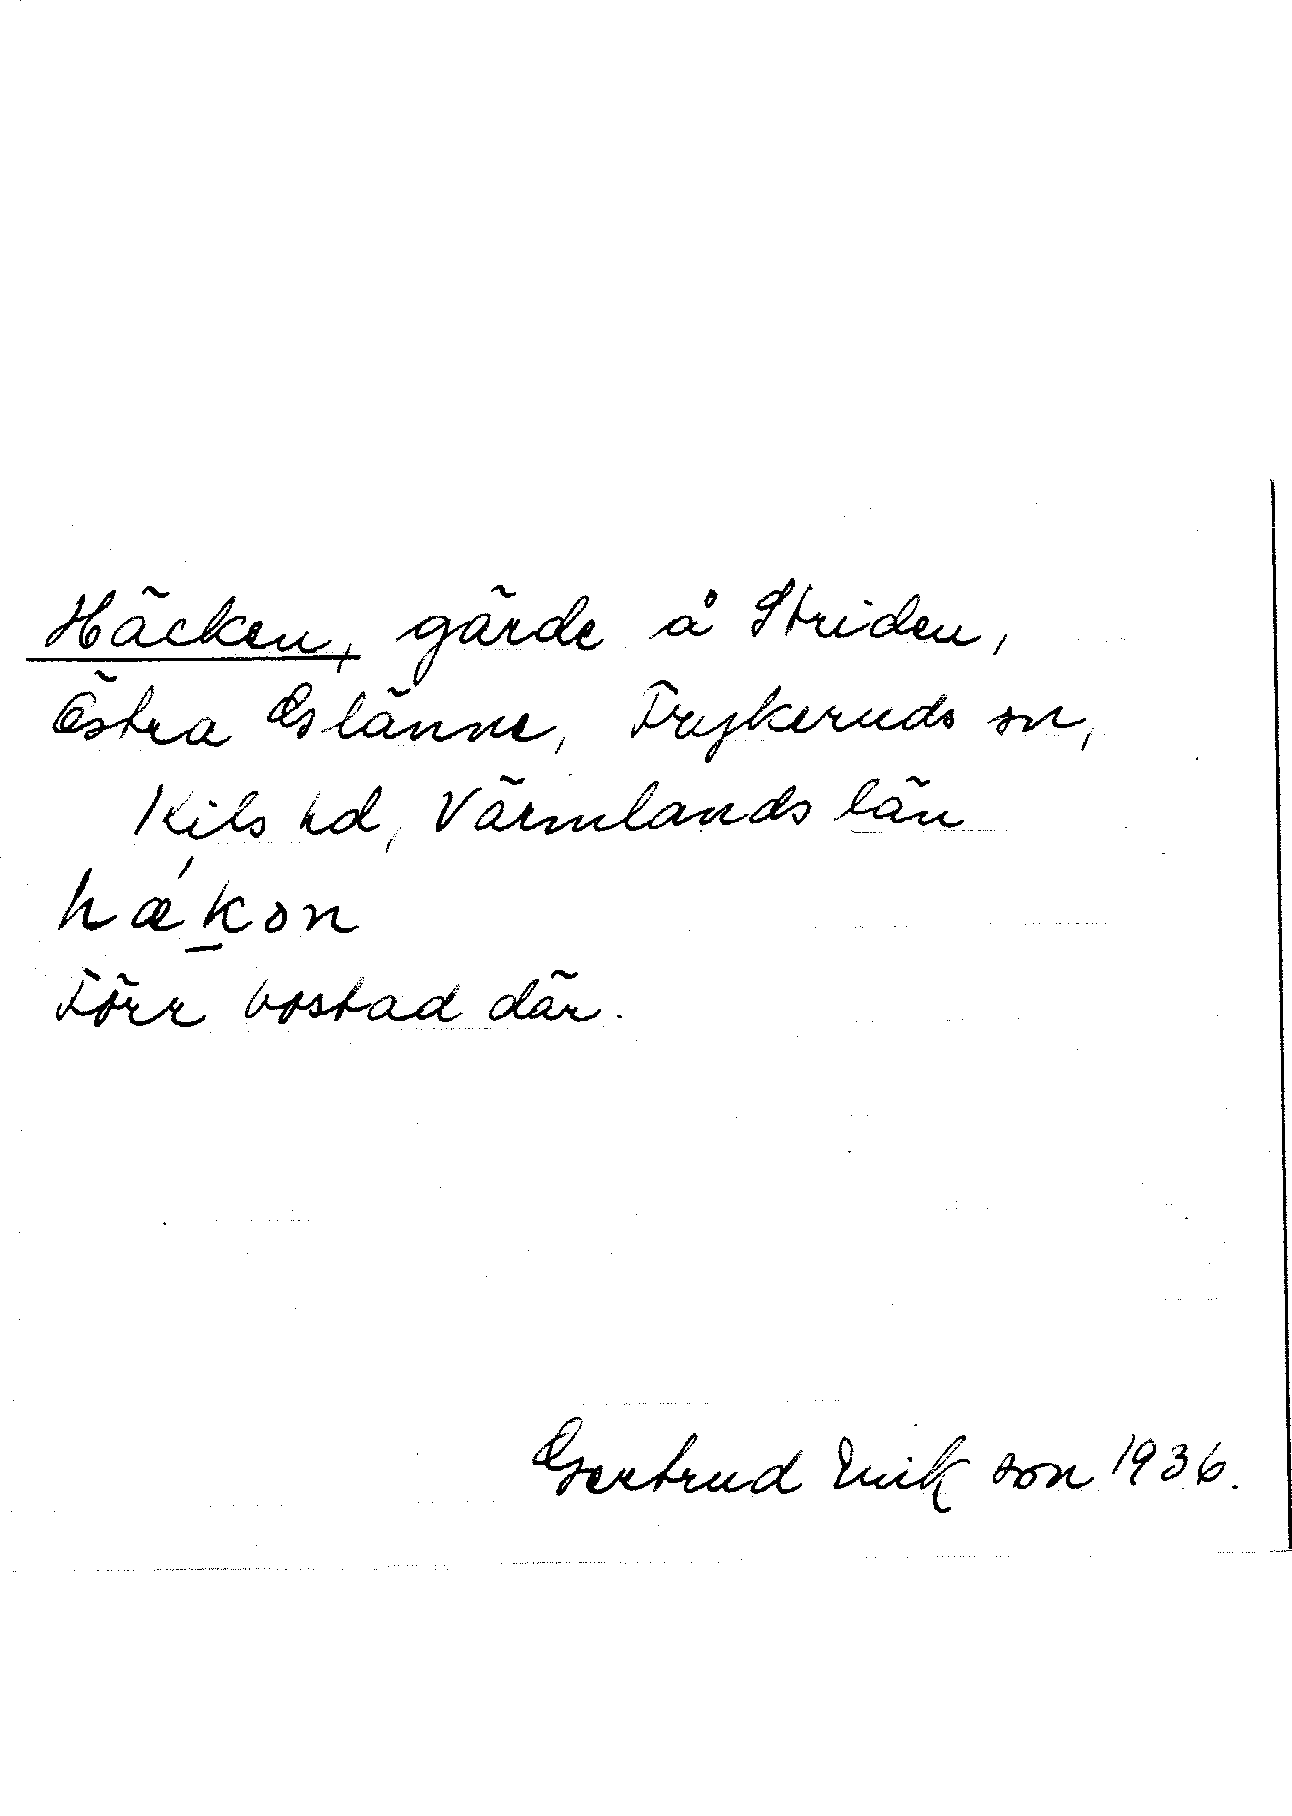 Häcken, gärde å Striden,
Östra Gslänne, Frykeruds sn,
Kils hd, Värmlands län
hǽkon
Förr bostad där.
Gertrud Erikson 1936.